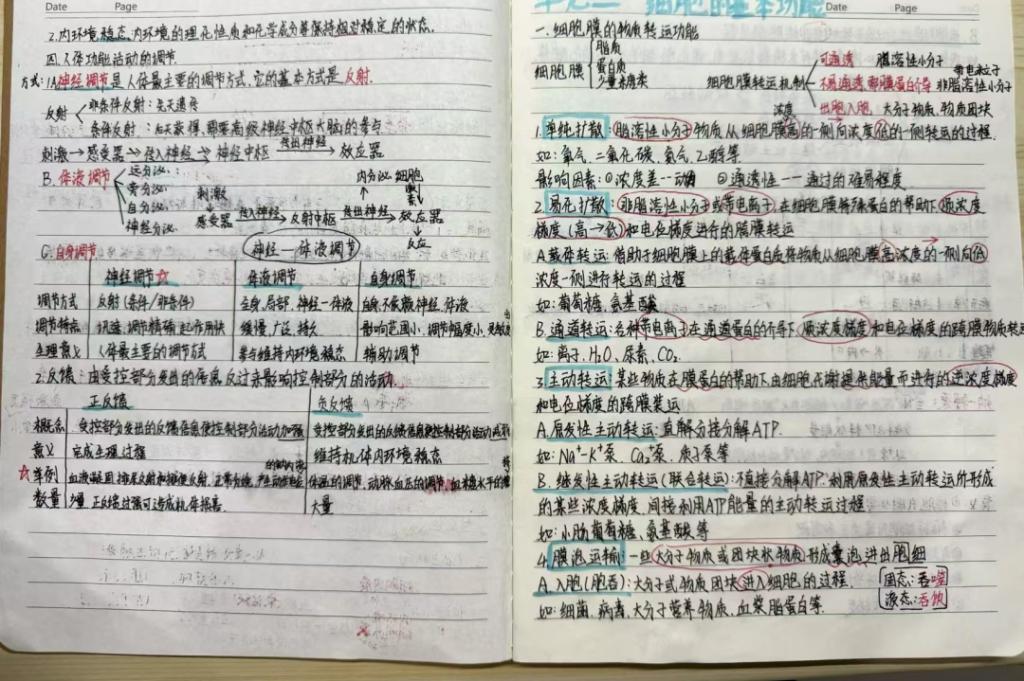 Date Page
2.内环境稳态:内环境的理化性质和化学成分等保持相对稳定的状态.
四.人体功能活动的调节
方式: A神经调节是人体最主要的调节方式,它的基本方式是反射.
反射 非条件反射:先天遗传
条件反射:后天获得,需要高级神经中枢(大脑)的参与
刺激→感受器→传入神经→神经中枢 传出神经→效应器
B.体液调节
远分泌:
旁分泌:
自分泌:
神经分泌:
刺激 内分泌 细胞
感受器 传入神经→反射中枢 传出神经→效应器
反应
神经一体液调节
C.自身调节
神经调节☆ 体液调节 自身调节
调节方式 反射(条件/非条件) 全身.局部.神经一体液 自身,不依赖神经.体液
调节特点 迅速.调节精确.起作用快 缓慢.广泛.持久 影响范围小,调节幅度小,
生理意义 人体最主要的调节方式 参与维持内环境稳态 辅助调节
2.反馈:由受控部分发出的信息反过来影响控制部分的活动.
正反馈 负反馈
概念 受控部分发出的反馈信息使控制部分活动加强 受控部分发出的反馈信息使控制部分活动减弱
意义 完成生理过程 维持机体内环境稳态
☆举例 血液凝固.排尿反射和排便反射.正常分娩. 体温的调节.动脉血压的调节.血糖水平的
数量 少量 正反馈过强可造成机体损害. 大量
单元二 细胞的基本功能
Date Page
一.细胞膜的物质转运功能
细胞膜 脂质
蛋白质
少量糖类
细胞膜转运机制
可通透 脂溶性小分子
不易通透需膜蛋白介导 非脂溶性小分子 带电离子
出胞入胞 大分子物质.物质团块
1.单纯扩散:脂溶性小分子物质从细胞膜高浓度的一侧向浓度低的一侧转运的过程.
如:氧气.二氧化碳.氮气.乙醇等
影响因素:①浓度差一动力 ②通透性 一 通过的难易程度
2.易化扩散:非脂溶性小分子或带电离子,在细胞膜特殊蛋白的帮助下,顺浓度
梯度(高→低)和电位梯度进行的跨膜转运
A载体转运:借助于细胞膜上的载体蛋白质将物质从细胞膜高浓度的一侧向低
浓度一侧进行转运的过程
如:葡萄糖.氨基酸
B.通道转运:各种带电离子在通道蛋白的介导下,顺浓度梯度和电位梯度的跨膜物质转运
如:离子.H₂O.尿素.CO₂.
3.主动转运:某些物质在膜蛋白的帮助下,由细胞代谢提供能量而进行的逆浓度梯度
和电位梯度的跨膜装运
A.原发性主动转运:直解分接分解ATP.
如:Na⁺-K⁺泵、Ca²⁺泵、质子泵等
B.继发性主动转运(联合转运):不直接分解ATP.利用原发性主动转运所形成
的某些浓度梯度,间接利用ATP能量的主动转运过程
如:小肠葡萄糖、氨基酸等
4.膜泡运输:一些大分子物质或团块状物质形成囊泡进出胞细
A.入胞(胞吞):大分子或物质团块进入细胞的过程.
固态:吞噬
液态:吞饮
如:细菌.病毒.大分子营养物质.血浆脂蛋白等.